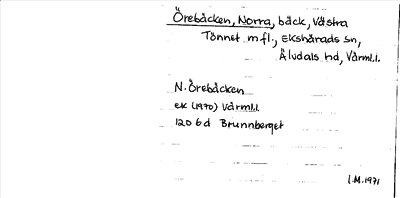 Örebäcken, Norra, bäck, Västra
Tönnet m fl., Ekshärads sn,
Älvdals hd, Värml.l.
N. Örebäcken
ek (1970) Värml.l.
120 6 d Brunnberget
I.M. 1971